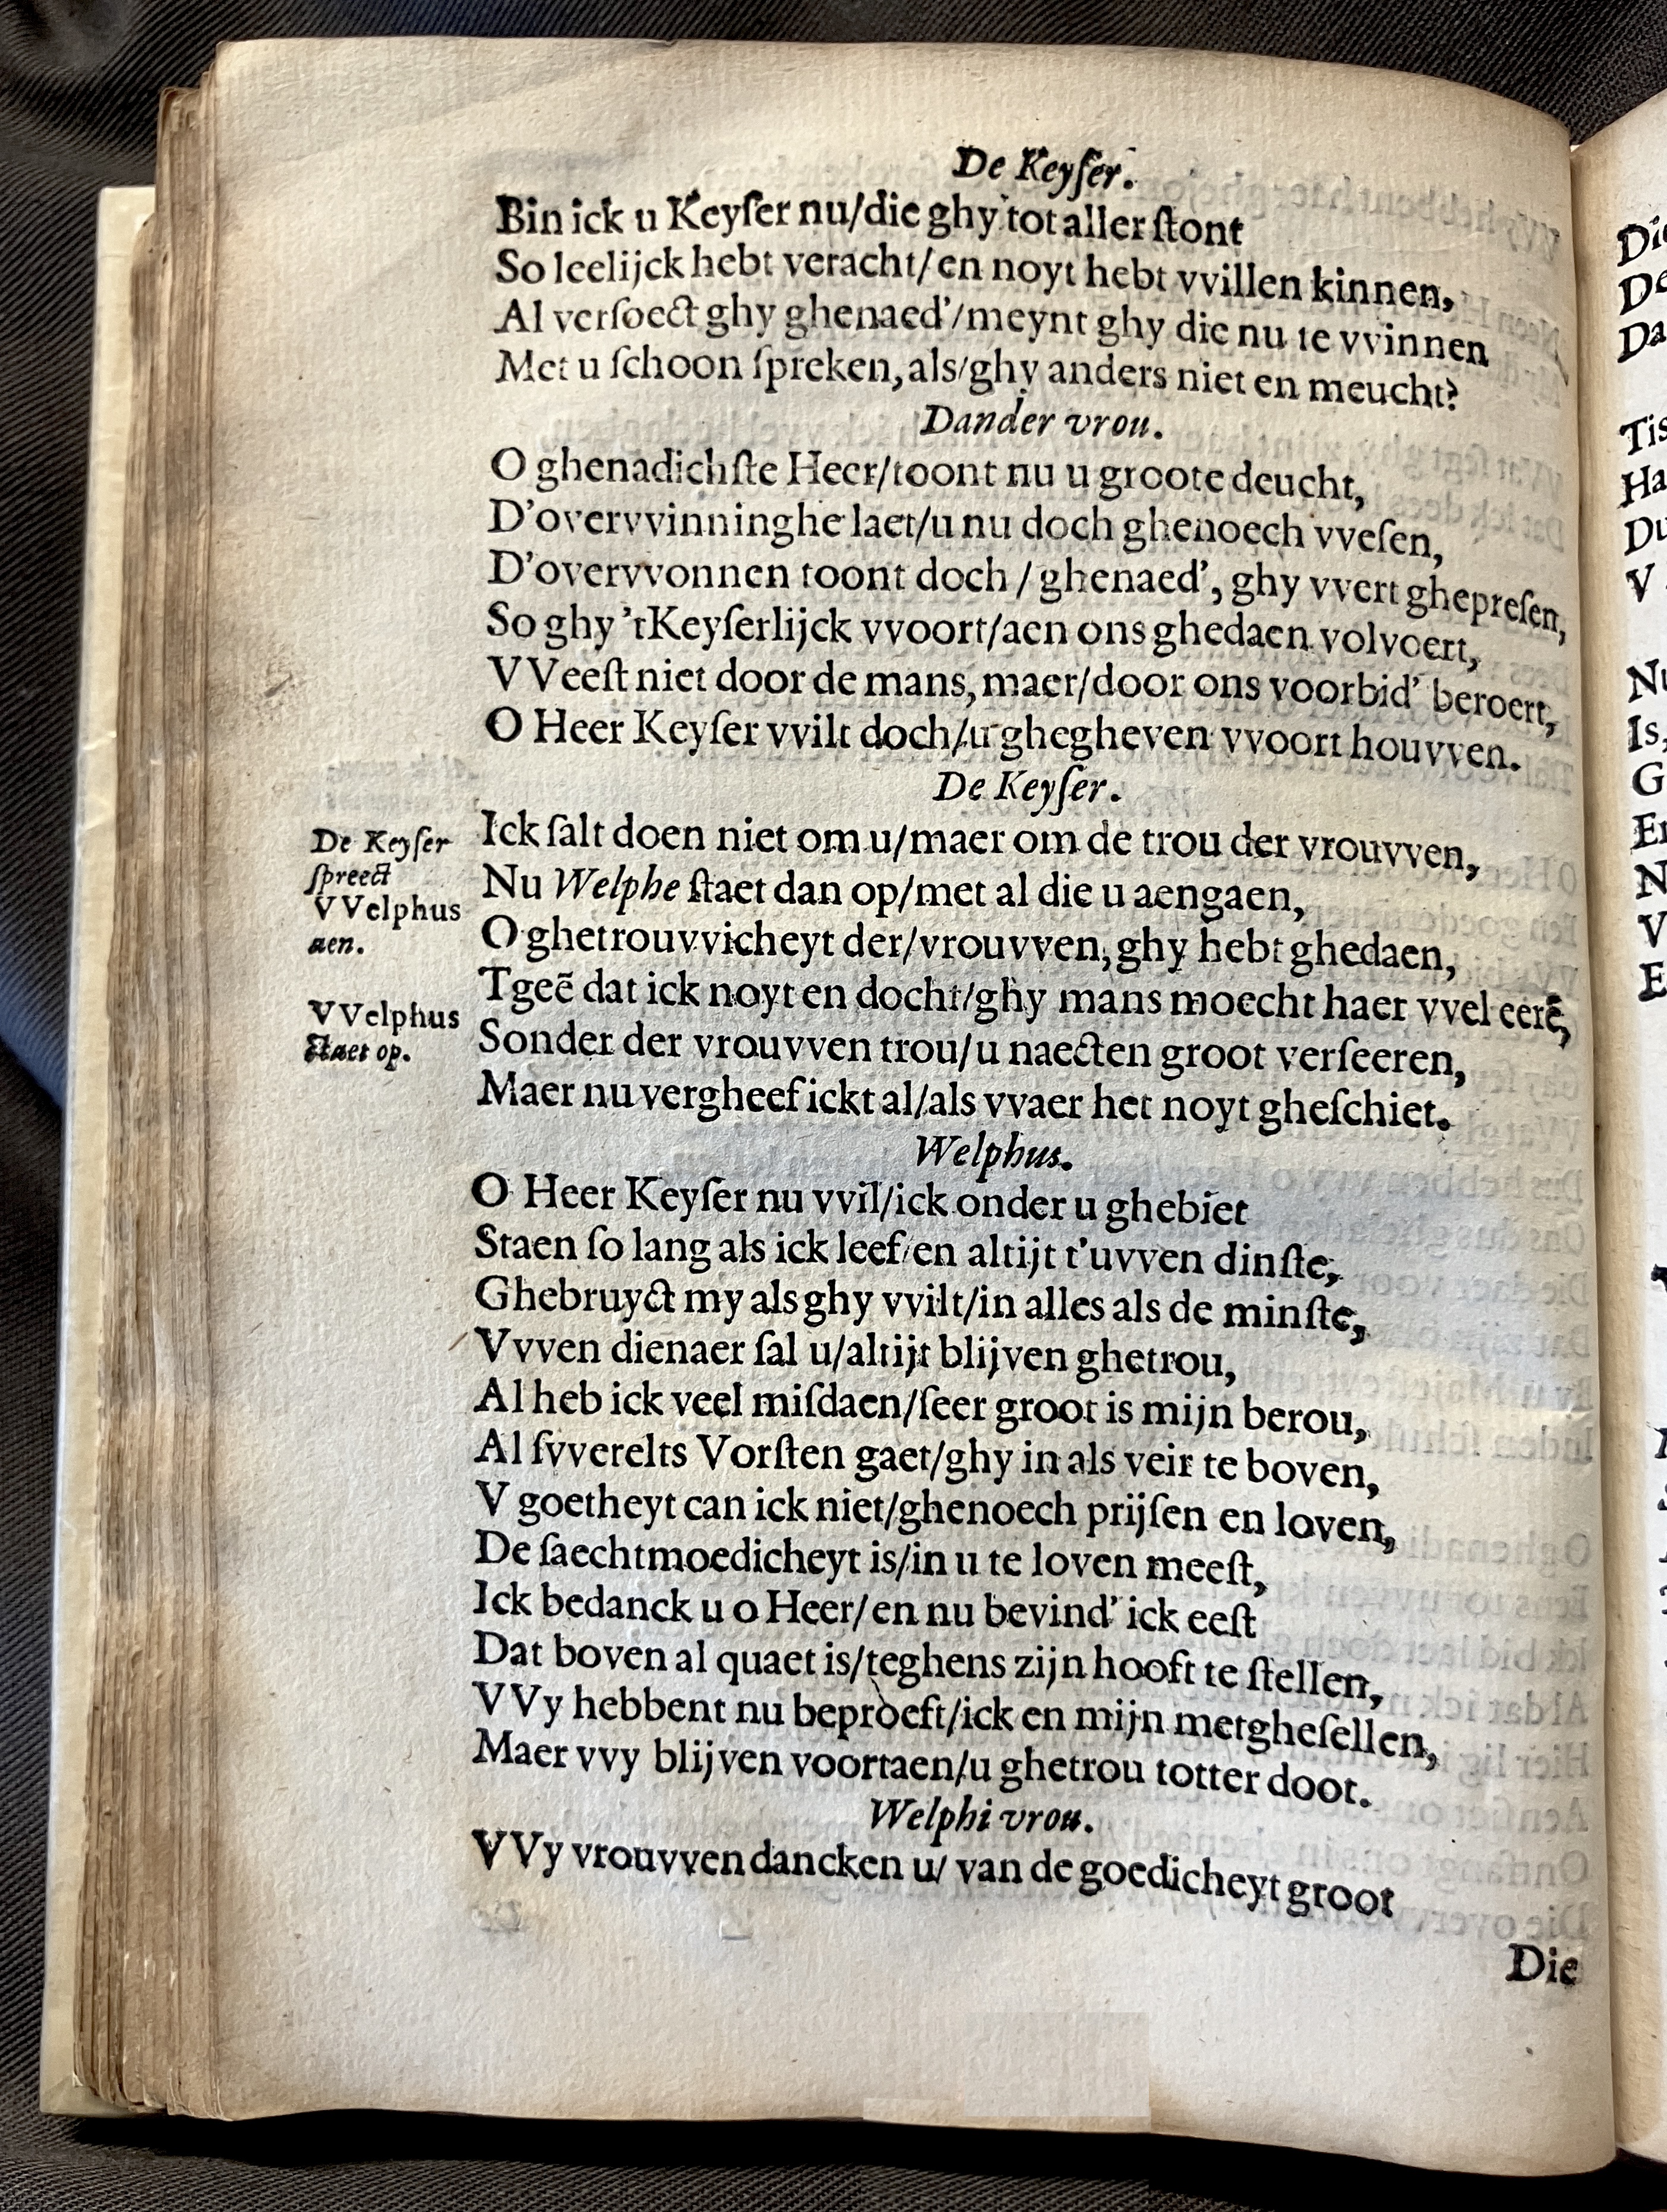 De Keyſer.
Bin ick u Keyſer nu/die ghy tot aller ſtont
So leelijck hebt veracht/en noyt hebt vvillen kinnen,
Al verſoect ghy ghenaed'/meynt ghy die nu te vvinnen
Met u ſchoon ſpreken, als/ghy anders niet en meucht?
Dander vrou.
O ghenadichſte Heer/toont nu u groote deucht,
D'overvvinninghe laet/u nu doch ghenoech vveſen,
D'overvvonnen toont doch / ghenaed', ghy vvert ghepreſen,
So ghy 'tKeyſerlijck vvoort/aen ons ghedaen volvoert,
VVeeſt niet door de mans, maer/door ons voorbid' beroert,
O Heer Keyſer vvilt doch/u ghegheven vvoort houvven.
De Keyſer.
De Keyſer
ſpreect
VVelphus
aen.
Ick ſalt doen niet om u/maer om de trou der vrouvven,
Nu Welphe ſtaet dan op/met al die u aengaen,
O ghetrouvvicheyt der/vrouvven, ghy hebt ghedaen,
Tgeẽ dat ick noyt en docht/ghy mans moecht haer vvel eerẽ,
VVelphus
ſtaet op.
Sonder der vrouvven trou/u naecten groot verſeeren,
Maer nu vergheef ickt al/als vvaer het noyt gheſchiet.
Welphus.
O Heer Keyſer nu vvil/ick onder u ghebiet
Staen ſo lang als ick leef/en altijt t'uvven dinſte,
Ghebruyct my als ghy vvilt/in alles als de minſte,
Vvven dienaer ſal u/altijt blijven ghetrou,
Al heb ick veel miſdaen/ſeer groot is mijn berou,
Al ſvverelts Vorſten gaet/ghy in als veir te boven,
V goetheyt can ick niet/ghenoech prijſen en loven,
De ſaechtmoedicheyt is/in u te loven meeſt,
Ick bedanck u o Heer/en nu bevind' ick eeſt
Dat boven al quaet is/teghens zijn hooft te ſtellen,
VVy hebbent nu beproeft/ick en mijn metgheſellen,
Maer vvy blijven voortaen/u ghetrou totter doot.
Welphi vrou.
VVy vrouvven dancken u/ van de goedicheyt groot
Die